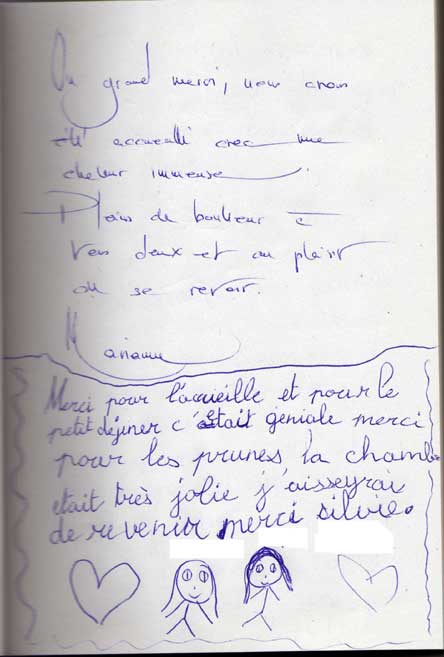 Un grand merci, nous avons
été accueilli avec une
chaleur immense.
Pleins de bonheur à
vous deux et au plaisir
de se revoir.
Marianne
Merci pour l'acueille et pour le
petit déjuner c'était géniale merci
pour les prunes la chambre
etait très jolie j'aisseyrai
de revenir merci silvie.